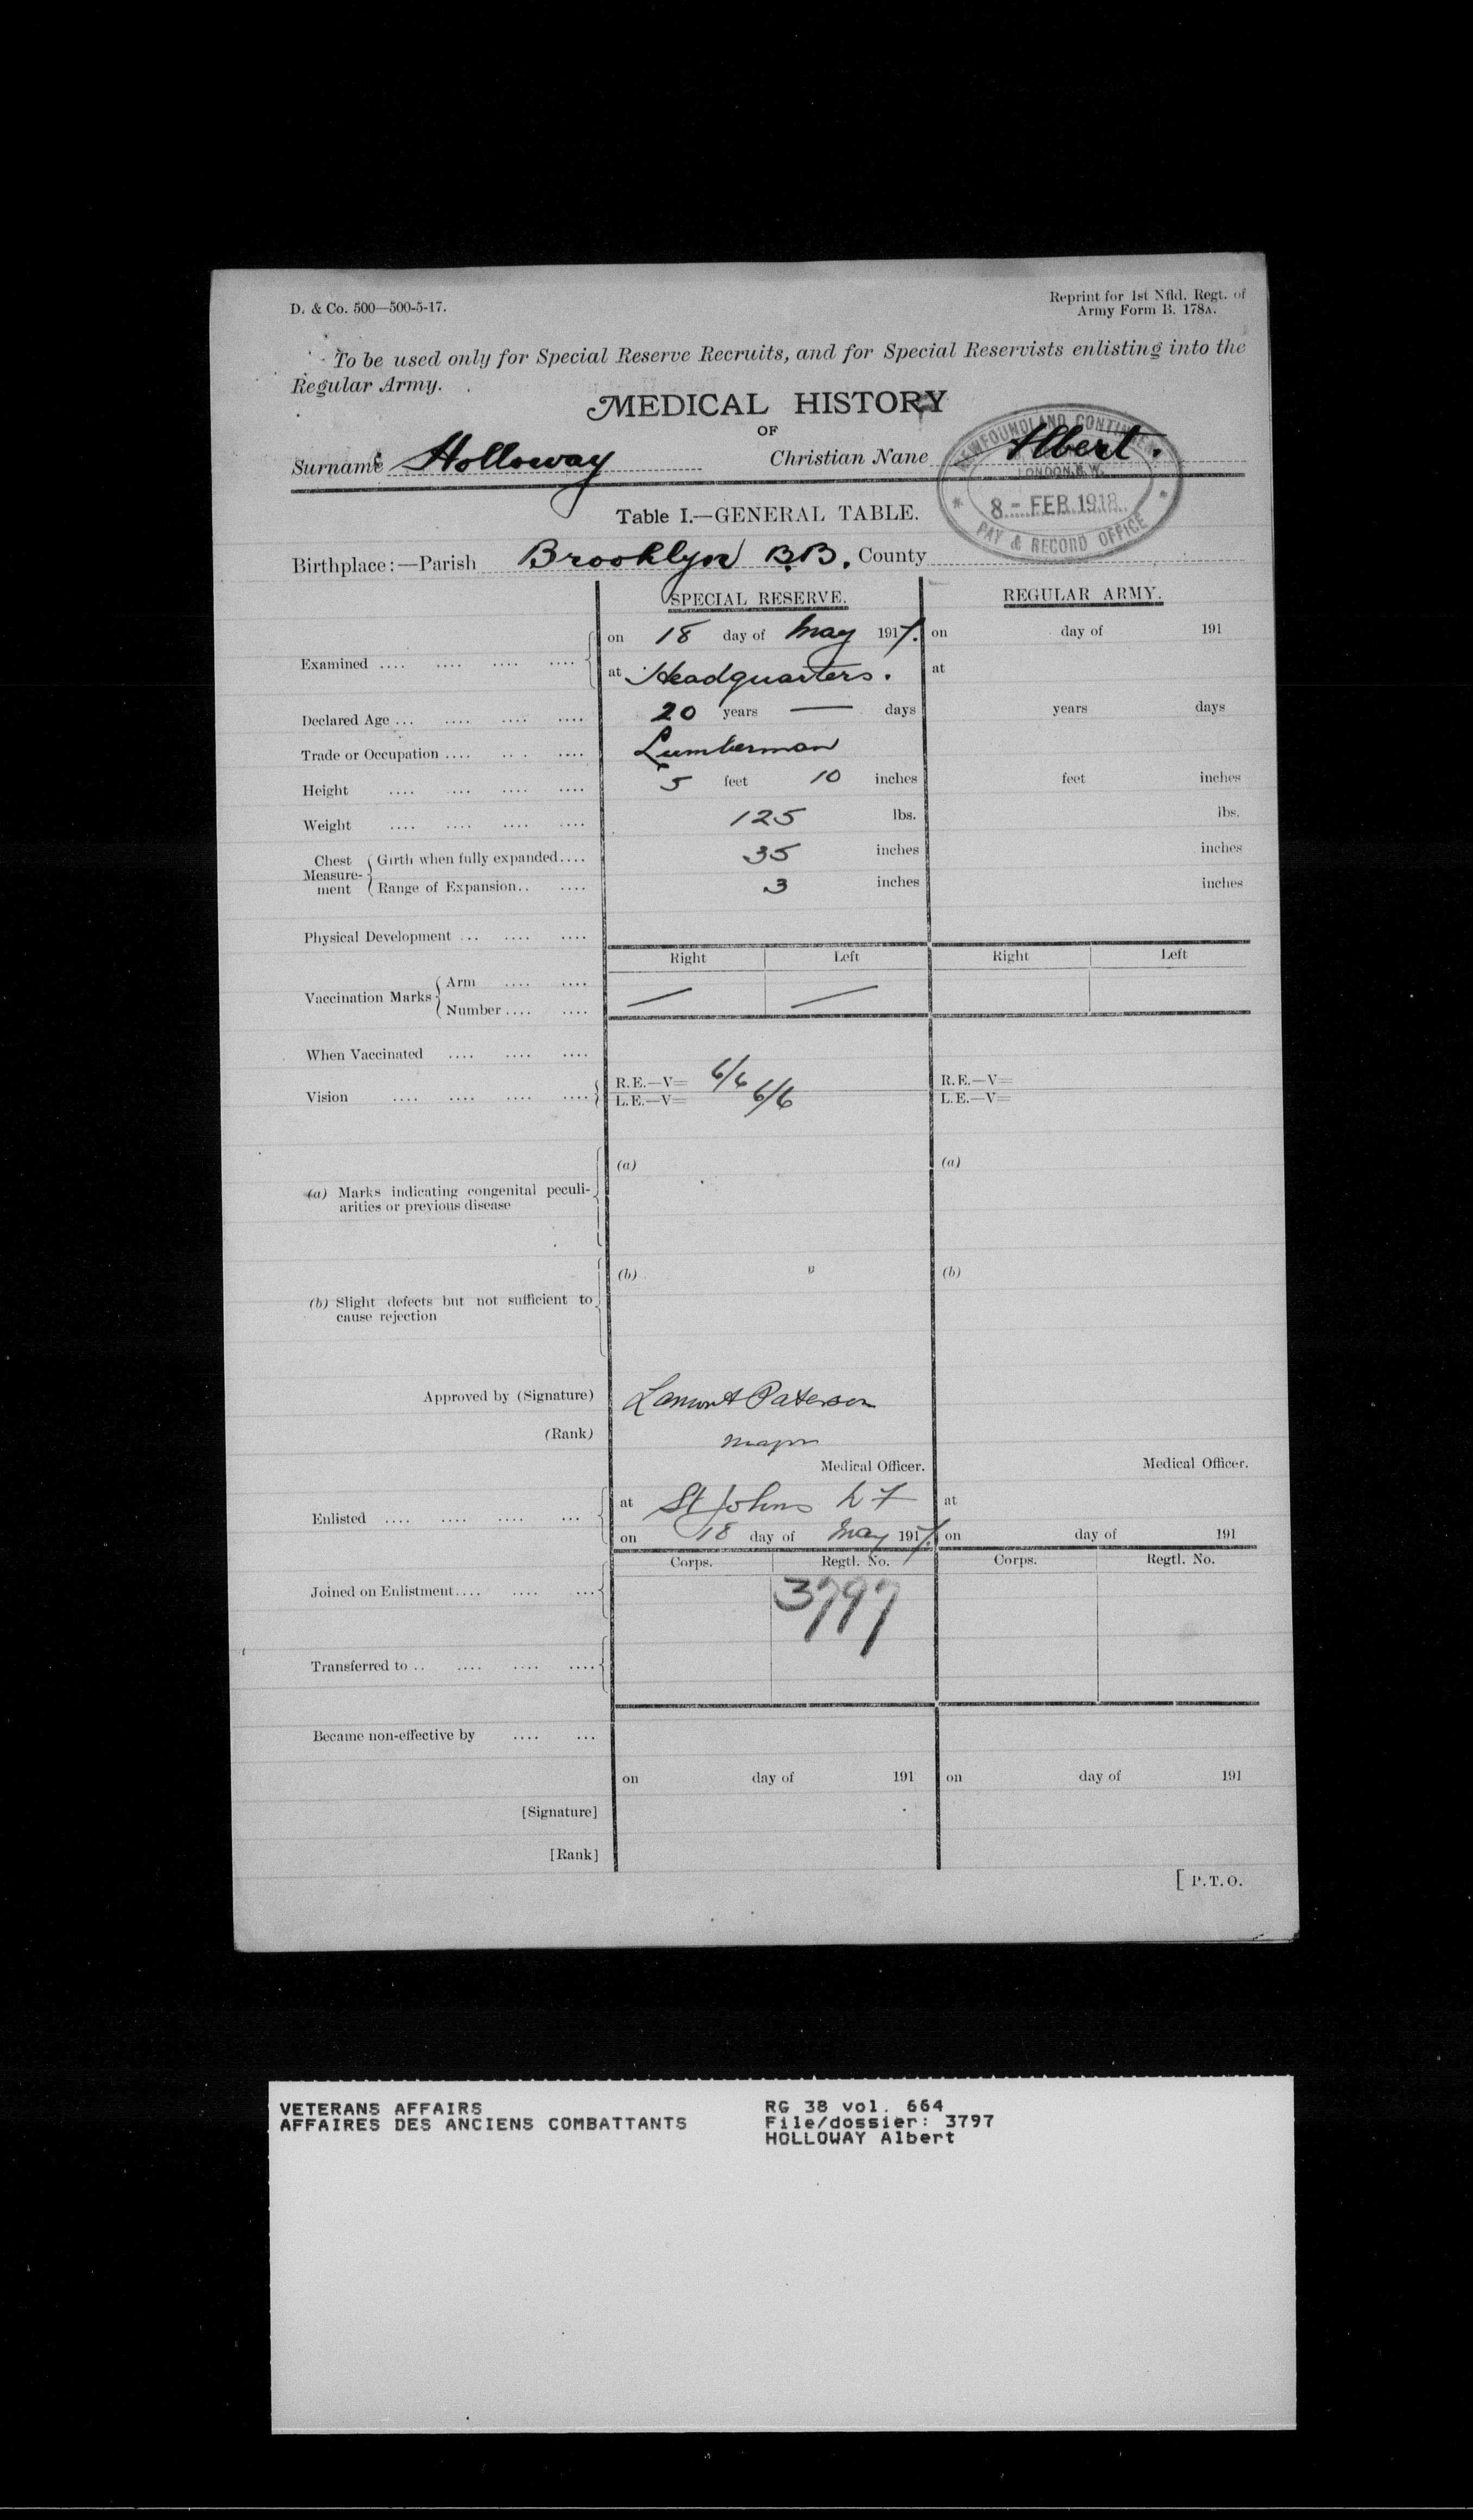 D. & Co. 500—500-5-17.
Reprint for 1st Nfld. Regt. of
Army Form B. 178A.
To be used only for Special Reserve Recruits, and for Special Reservists enlisting into the
Regular Army.
MEDICAL HISTORY
OF
Surname Holloway Christian Name Albert.
NEWFOUNDLAND CONTINGENT
LONDON, S.W.
8 - FEB 1918
PAY & RECORD OFFICE
Table I.—GENERAL TABLE.
Birthplace:—Parish Brooklyn B.B. County
SPECIAL RESERVE. REGULAR ARMY.
Examined .... .... .... .... on 18 day of May 1917. on day of 191
at Headquarters. at
Declared Age ... .... .... .... 20 years — days years days
Trade or Occupation .... .... .... Lumberman
Height .... .... .... .... 5 feet 10 inches feet inches
Weight .... .... .... .... 125 lbs. lbs.
Chest Measurement Girth when fully expanded.... 35 inches inches
Range of Expansion.. .... 3 inches inches
Physical Development ... .... ....
Right Left Right Left
Vaccination Marks Arm .... .... — —
Number .... ....
When Vaccinated .... .... ....
Vision .... .... .... .... R.E.—V= 6/6 R.E.—V=
L.E.—V= 6/6 L.E.—V=
(a) (a)
(a) Marks indicating congenital peculi-
arities or previous disease
(b) (b)
(b) Slight defects but not sufficient to
cause rejection
Approved by (Signature) Lamont Paterson
(Rank) Major
Medical Officer. Medical Officer.
Enlisted .... .... .... ... at St Johns N F at
on 18 day of May 1917. on day of 191
Corps. Regtl. No. Corps. Regtl. No.
Joined on Enlistment.... .... ... 3797
Transferred to .. .... .... ....
Became non-effective by .... ...
on day of 191 on day of 191
[Signature]
[Rank]
[ P.T.O.
VETERANS AFFAIRS
AFFAIRES DES ANCIENS COMBATTANTS
RG 38 vol. 664
File/dossier: 3797
HOLLOWAY Albert